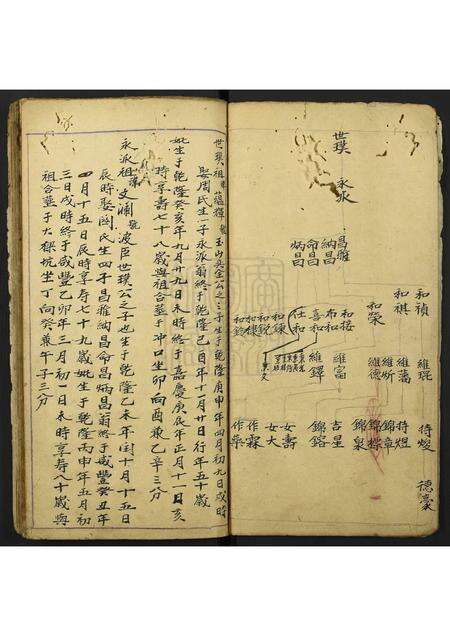 世璞
永派
昌雅
納昌
命昌
炳昌
和禎
和祺
和榮
和接
布和
喜和
仕和
和鍊
和銳
和樑
和錦
維琨
維藩
維炘
維德
維富
維鐸
待燬
待煜
錦章
錦標
錦泉
吉星
錦鎔
女壽
女大
作霖
作樂
德豪
世璞祖 玉山吳全公之子生于乾隆庚申年四月初九日戌時
娶周氏生一子永派翁終于乾隆乙酉年十一月廿日行年五十歲
妣生于乾隆癸亥年九月廿九日未時終于嘉慶庚辰年正月十一日亥
時享壽七十八歲與祖合葬于冲口坐卯向酉兼乙辛三分
永派祖 文瀾號波臣世璞公之子也生于乾隆乙未年閏十月十五日
辰時娶關氏生四子昌雅納昌命昌炳昌翁終于咸豐癸丑年
四月十五日辰時享壽七十九歲妣生于乾隆丙申年五月初
三日戌時終于咸豐乙卯年三月初日未時享壽八十歲與
祖合葬于大樑坑坐丁向癸兼午子三分